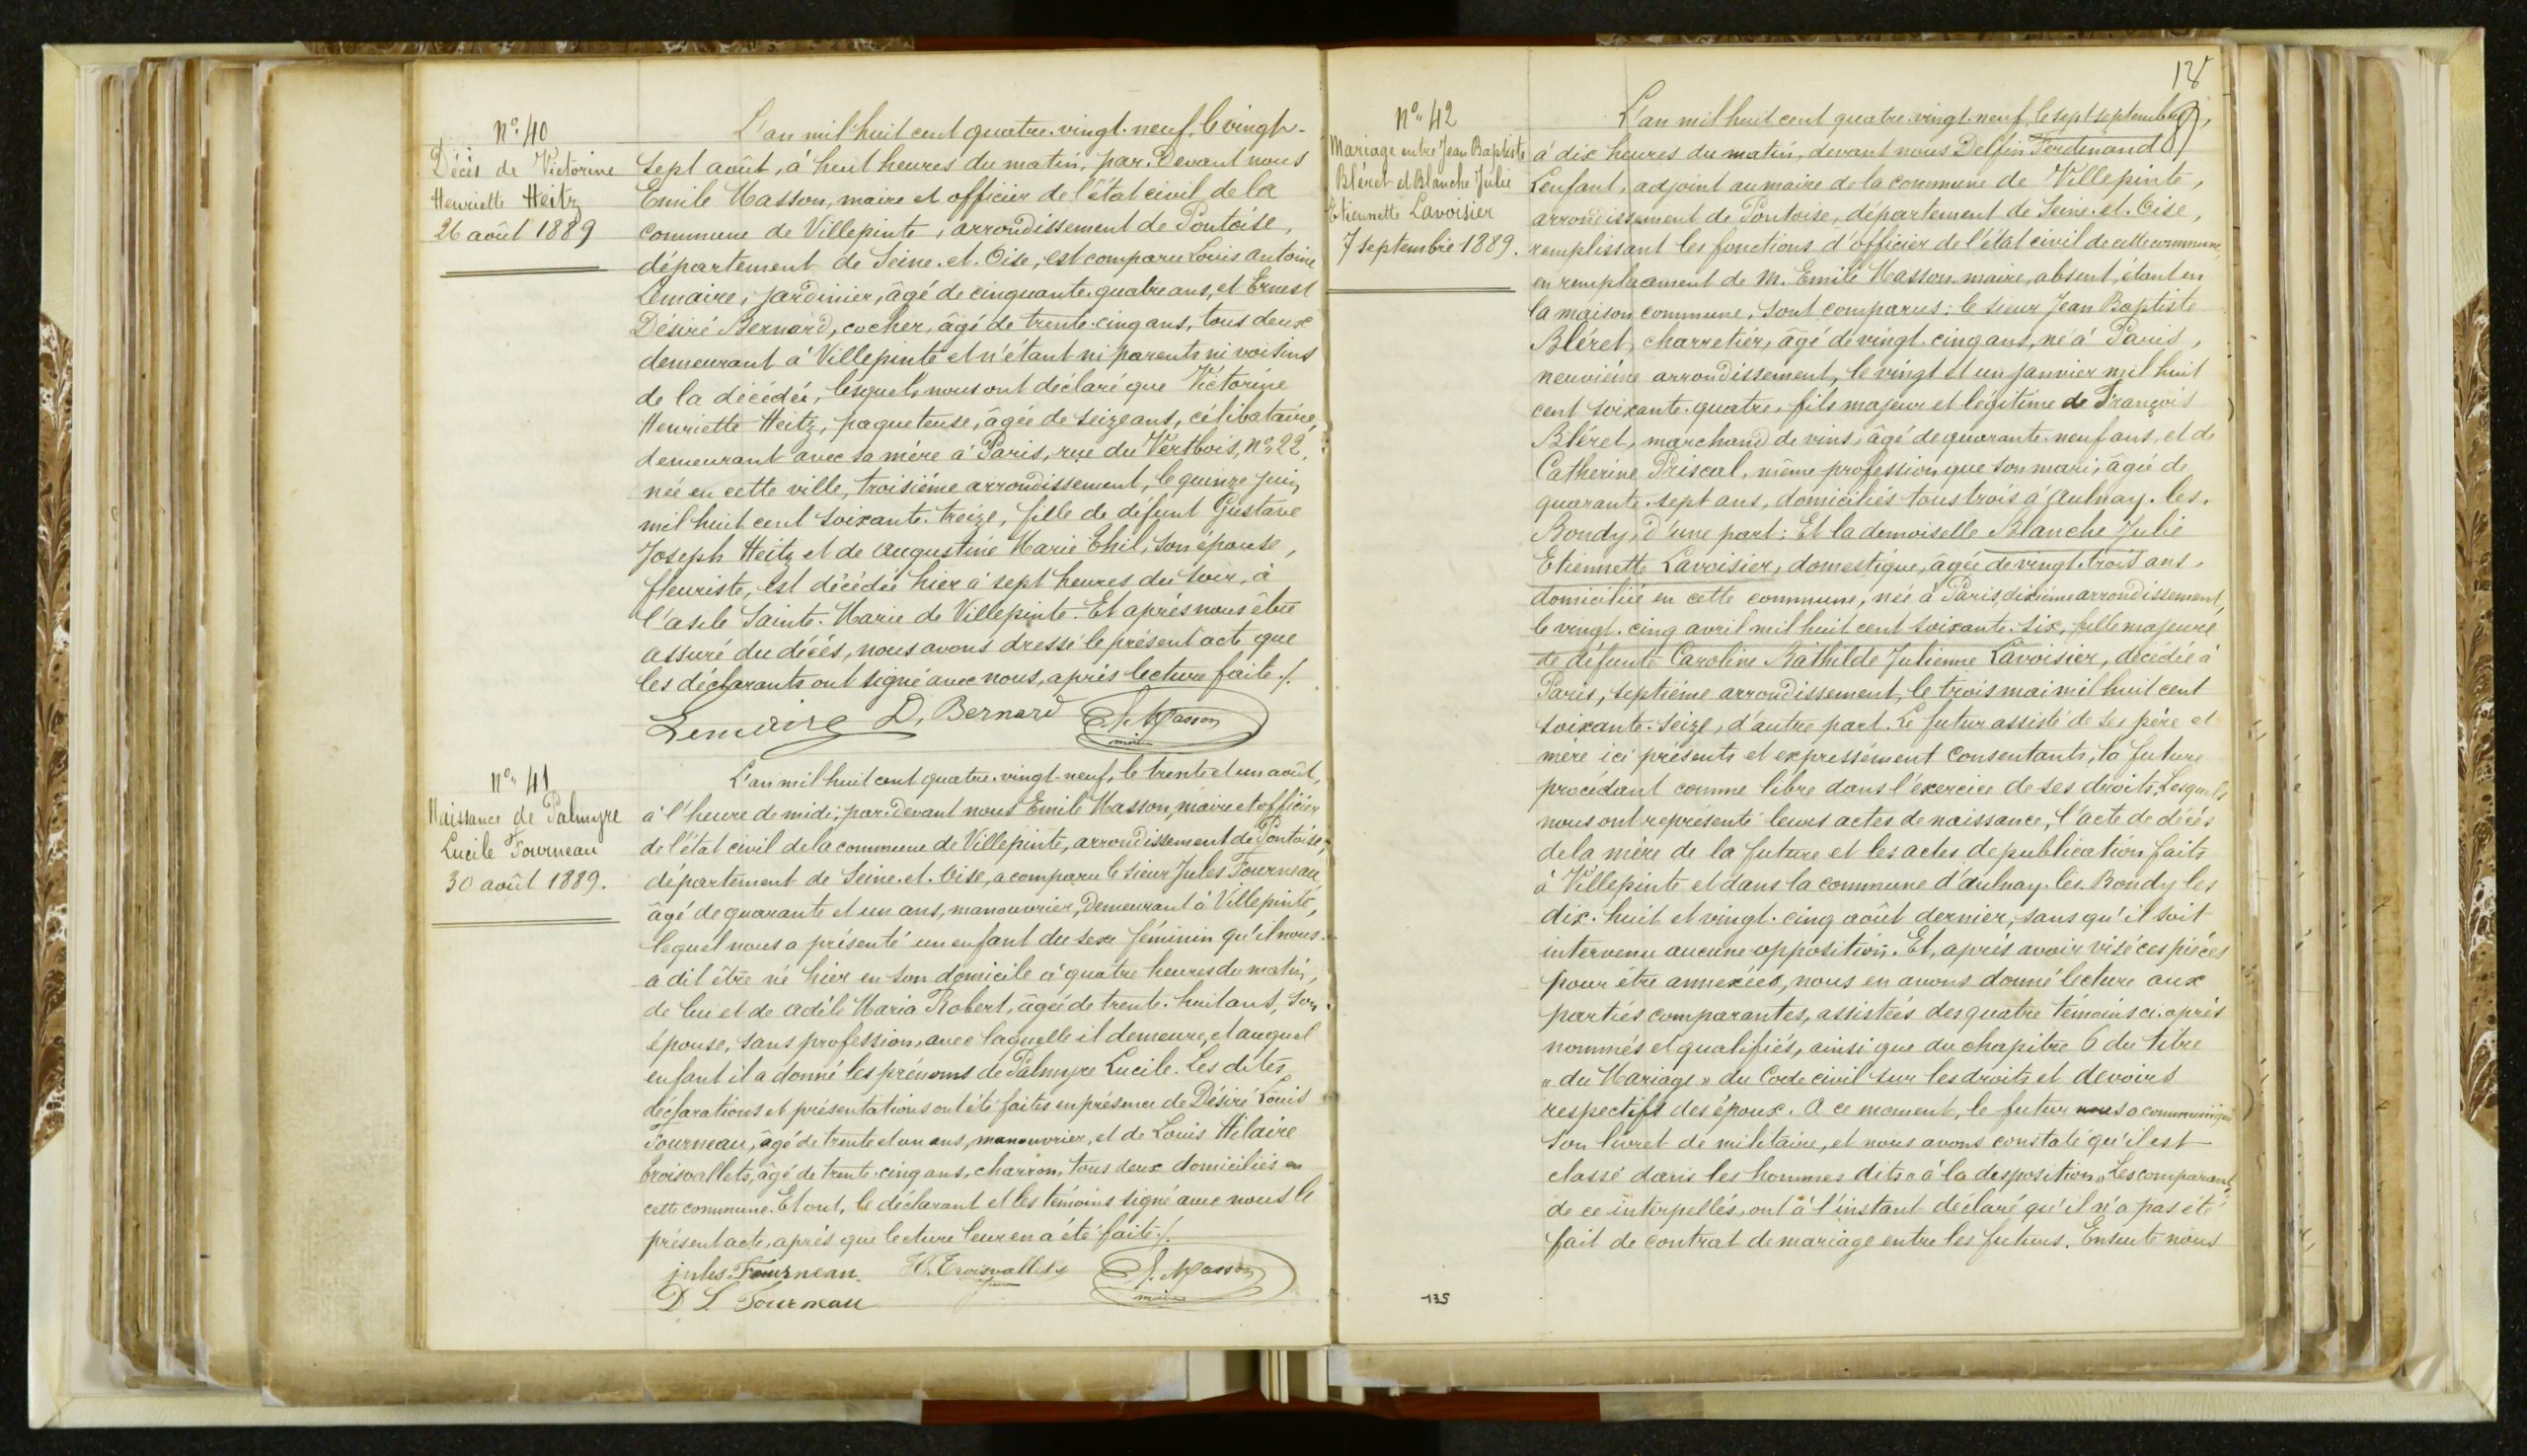 N° 40
Décès de Victorine
Henriette Heitz
26 août 1889
L'an mil huit cent quatre-vingt-neuf, le vingt-
sept août, à huit heures du matin, par-devant nous
Emile Masson, maire et officier de l'état civil de la
commune de Villepinte, arrondissement de Pontoise,
département de Seine-et-Oise, est comparu Louis Antoine
Lemaire, jardinier, âgé de cinquante-quatre ans, et Ernest
Désiré Bernard, cocher, âgé de trente-cinq ans, tous deux
demeurant à Villepinte et n'étant ni parents ni voisins
de la décédée, lesquels nous ont déclaré que Victorine
Henriette Heitz, paqueteuse, âgée de seize ans, célibataire,
demeurant avec sa mère à Paris, rue du Vertbois, N° 22,
née en cette ville, troisième arrondissement, le quinze juin
mil huit cent soixante-treize, fille de défunt Gustave
Joseph Heitz et de Augustine Marie Thil, son épouse,
fleuriste, est décédée hier à sept heures du soir, à
l'asile Sainte-Marie de Villepinte. Et après nous être
assuré du décès, nous avons dressé le présent acte que
les déclarants ont signé avec nous, après lecture faite ./.
Lemaire D. Bernard E. Masson
maire
N° 41
Naissance de Palmyre
Lucile Fourneau
30 août 1889.
L'an mil huit cent quatre-vingt-neuf, le trente et un août,
à l'heure de midi, par-devant nous Emile Masson, maire et officier
de l'état civil de la commune de Villepinte, arrondissement de Pontoise,
département de Seine-et-Oise, a comparu le sieur Jules Fourneau,
âgé de quarante et un ans, manouvrier, demeurant à Villepinte,
lequel nous a présenté un enfant du sexe féminin qu'il nous
a dit être né hier en son domicile à quatre heures du matin,
de lui et de Adèle Maria Robert, âgée de trente-huit ans, son
épouse, sans profession, avec laquelle il demeure, et auquel
enfant il a donné les prénoms de Palmyre Lucile. Les dites
déclarations et présentations ont été faites en présence de Désiré Louis
Fourneau, âgé de trente et un ans, manouvrier, et de Louis Hilaire
Troisvallets, âgé de trente-cinq ans, charron, tous deux domiciliés en
cette commune. Et ont, le déclarant et les témoins signé avec nous le
présent acte, après que lecture leur en a été faite ./.
jules Fourneau H. Troisvallets E. Masson
maire
D L Fourneau
N° 42
Mariage entre Jean Baptiste
Bléret et Blanche Julie
Etiennette Lavoisier
7 septembre 1889.
L'an mil huit cent quatre-vingt-neuf, le sept septembre,
à dix heures du matin, devant nous Delfin Ferdinand
Lenfant, adjoint au maire de la commune de Villepinte,
arrondissement de Pontoise, département de Seine-et-Oise,
remplissant les fonctions d'officier de l'état civil de cette commune,
en remplacement de M. Emile Masson, maire, absent, étant en
la maison commune, sont comparus : le sieur Jean Baptiste
Bléret, charretier, âgé de vingt-cinq ans, né à Paris,
neuvième arrondissement, le vingt et un janvier mil huit
cent soixante-quatre, fils majeur et légitime de François
Bléret, marchand de vins, âgé de quarante-neuf ans, et de
Catherine Priscal, même profession que son mari, âgée de
quarante-sept ans, domiciliés tous trois à Aulnay-les-
Bondy, d'une part : Et la demoiselle Blanche Julie
Etiennette Lavoisier, domestique, âgée de vingt-trois ans,
domiciliée en cette commune, née à Paris, dixième arrondissement,
le vingt-cinq avril mil huit cent soixante-six, fille majeure
de défunte Caroline Bathilde Julienne Lavoisier, décédée à
Paris, septième arrondissement, le trois mai mil huit cent
soixante-seize, d'autre part. Le futur assisté de ses père et
mère ici présents et expressément consentants, la future
procédant comme libre dans l'exercice de ses droits. Lesquels
nous ont représenté leurs actes de naissance, l'acte de décès
de la mère de la future et les actes de publication faits
à Villepinte et dans la commune d'Aulnay-les-Bondy les
dix-huit et vingt-cinq août dernier, sans qu'il soit
intervenu aucune opposition. Et, après avoir visé ces pièces
pour être annexées, nous en avons donné lecture aux
parties comparantes, assistées des quatre témoins ci-après
nommés et qualifiés, ainsi que du chapitre 6 du titre
« du Mariage » du Code civil sur les droits et devoirs
respectifs des époux. A ce moment, le futur nous a communiqué
son livret de militaire, et nous avons constaté qu'il est
classé dans les hommes dits « à la disposition » Les comparants,
de ce interpellés, ont à l'instant déclaré qu'il n'a pas été
fait de contrat de mariage entre les futurs. Ensuite nous
135